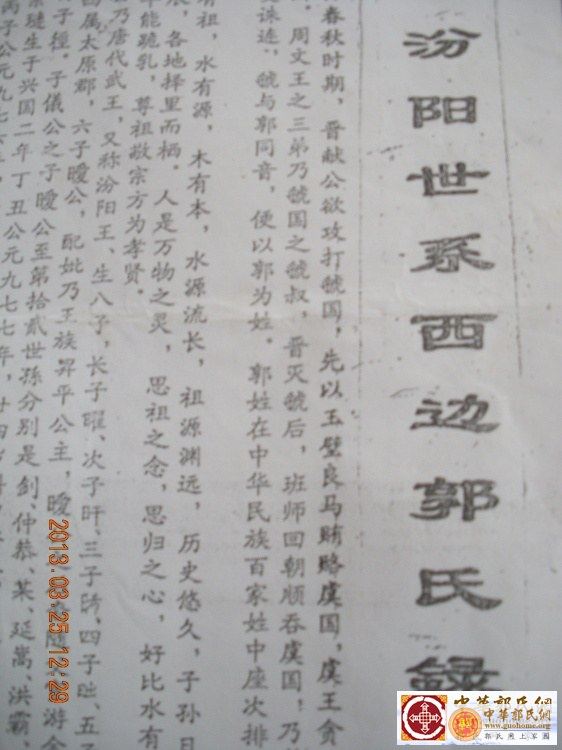 汾阳世系西边郭氏録
春秋时期，晋献公欲攻打虢国，先以玉璧良马贿赂虞国，虞王贪
周文王之三弟乃虢国之虢叔，晋灭虢后，班师回朝顺吞虞国；乃
诛连，虢与郭同音，便以郭为姓。郭姓在中华民族百家姓中座次
有祖，水有源，木有本，水源流长，祖源渊远，历史悠久，子孙日
，各地择里而栖。人是万物之灵，思祖之念，思归之心，好比水有
能跪乳，尊祖敬宗方为孝贤。
乃唐代武王，又称汾阳王、生八子，长子曜、次子旰、三子晞、四子昢、五子
属太原郡，六子曖公，配妣乃王族昇平公主，曖
子径。子儀公之子曖公至第拾贰世孙分别是剑、仲恭、某、延嵩、洪霸、
生于兴国二年丁丑公元九七七年，
丙子公元九七
2013.03.25 12:29
中華郭氏網
中華郭氏網
www.guohome.org
郭氏网上家园